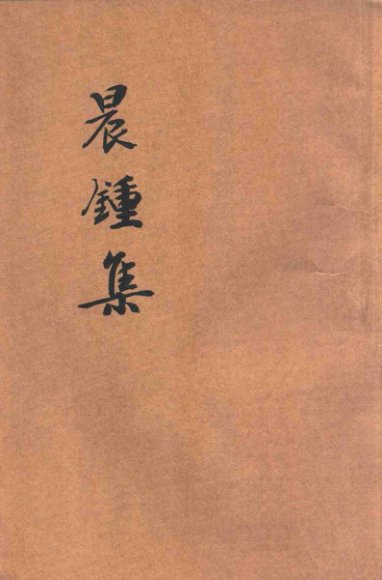 晨鍾集